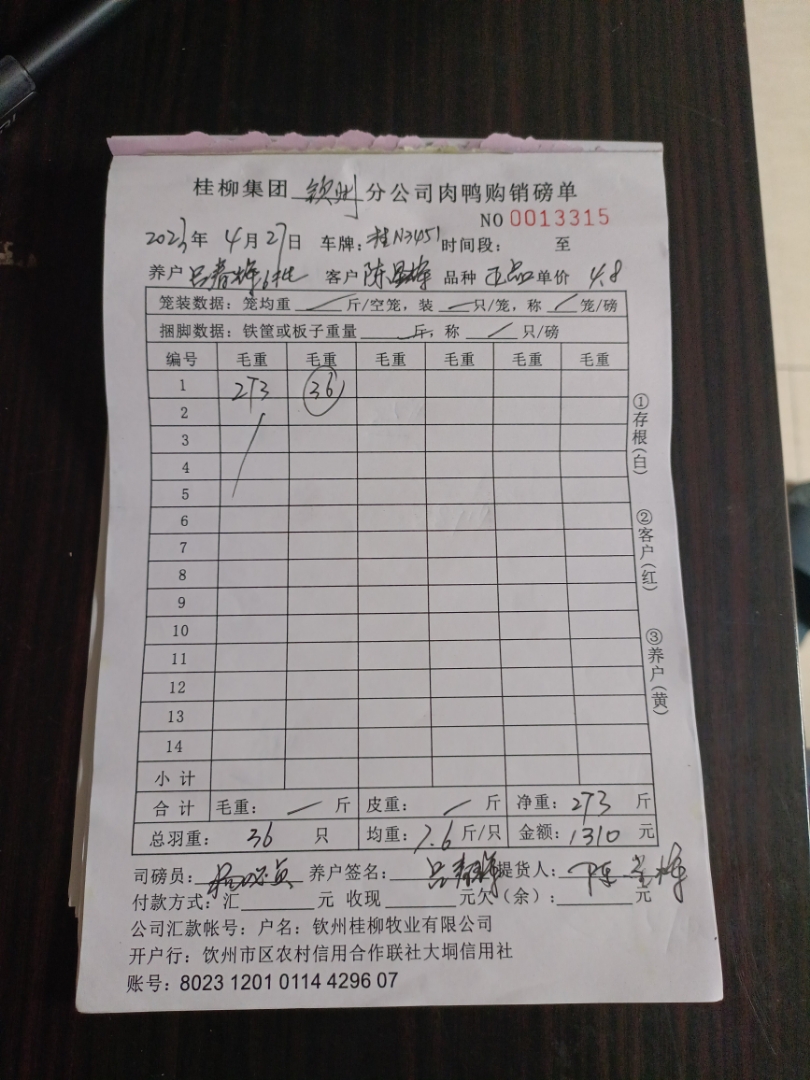 桂柳集团 钦州 分公司肉鸭购销磅单
NO 0013315
2023年 4月27日 车牌：桂N3451 时间段： 至
养户 吕春辉6批 客户 陈 辉 品种 正品 单价 4.8
笼装数据：笼均重 斤/空笼，装 只/笼，称 笼/磅
捆脚数据：铁筐或板子重量 斤，称 只/磅
编号 毛重 毛重 毛重 毛重 毛重 毛重
1 273 36
2
3
4
5
6
7
8
9
10
11
12
13
14
小计
合计 毛重： 斤 皮重： 斤 净重：273 斤
总羽重： 36 只 均重：7.6 斤/只 金额：1310 元
司磅员： 养户签名：吕春辉 提货人：陈 辉
付款方式：汇 元 收现 元欠（余）： 元
公司汇款帐号：户名：钦州桂柳牧业有限公司
开户行：钦州市区农村信用合作联社大垌信用社
账号：8023 1201 0114 4296 07
①存根（白）
②客户（红）
③养户（黄）